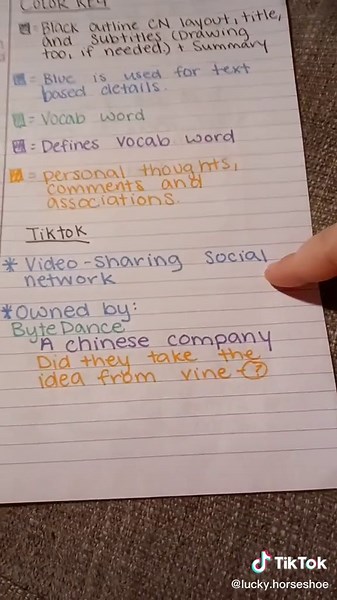 COLOR KEY
= Black outline CN layout, title,
and subtitles (Drawing
too, if needed.) + Summary
= Blue is used for text
based details.
= Vocab word
= Defines vocab word
= personal thoughts,
comments and
associations.
Tiktok
* Video-sharing social
network
* Owned by:
ByteDance
A chinese company
Did they take the
idea from vine (?)
TikTok
@lucky.horseshoe